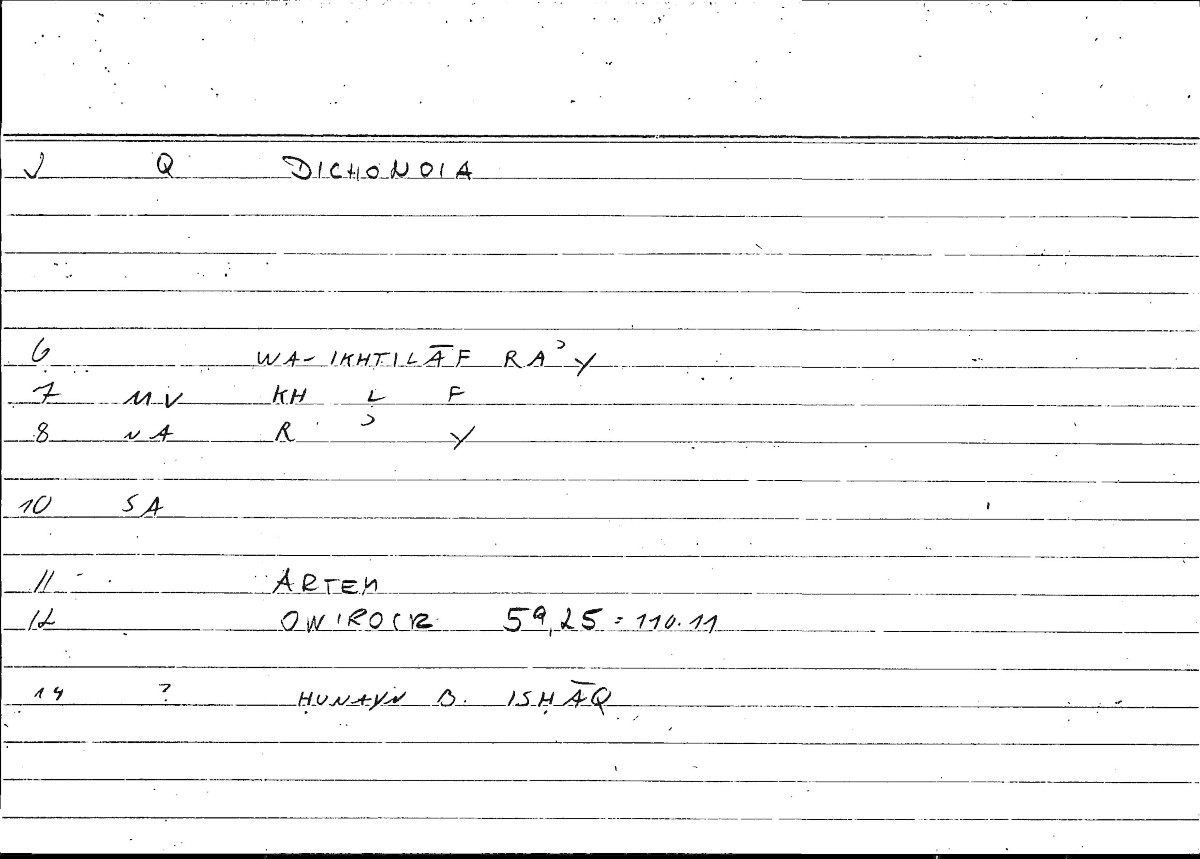 Q DICHONOIA
6 WA-IKHTILĀF RAʾY
7 MV KH L F
8 NA R ʾ Y
10 SA
11 ARTEM
12 ONIROCR 59,25 = 110.11
14 ? ḤUNAYN B. ISḤĀQ